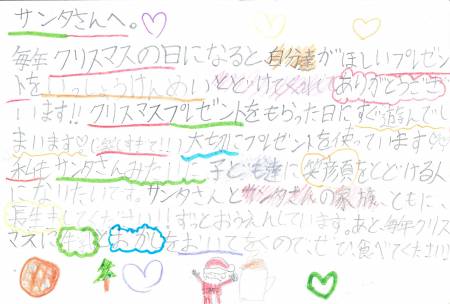 サンタさんへ。
毎年クリスマスの日になると自分達がほしいプレゼン
トをいっしょうけんめいととどけてくれてありがとうござ
います!!クリスマスプレゼントをもらった日にすぐ遊んでし
まいます♡(必ずます!!)大切にプレゼントを使っています♡
私も サンタさんみたいに子ども達に笑顔をとどける人
になりたいです。サンタさんとサンタさんの家族、ともに、
長生き ずっとおうえんしています。あと、毎年クリス
マスに牛 とおかしをおいておくのでぜひ、食べてください!